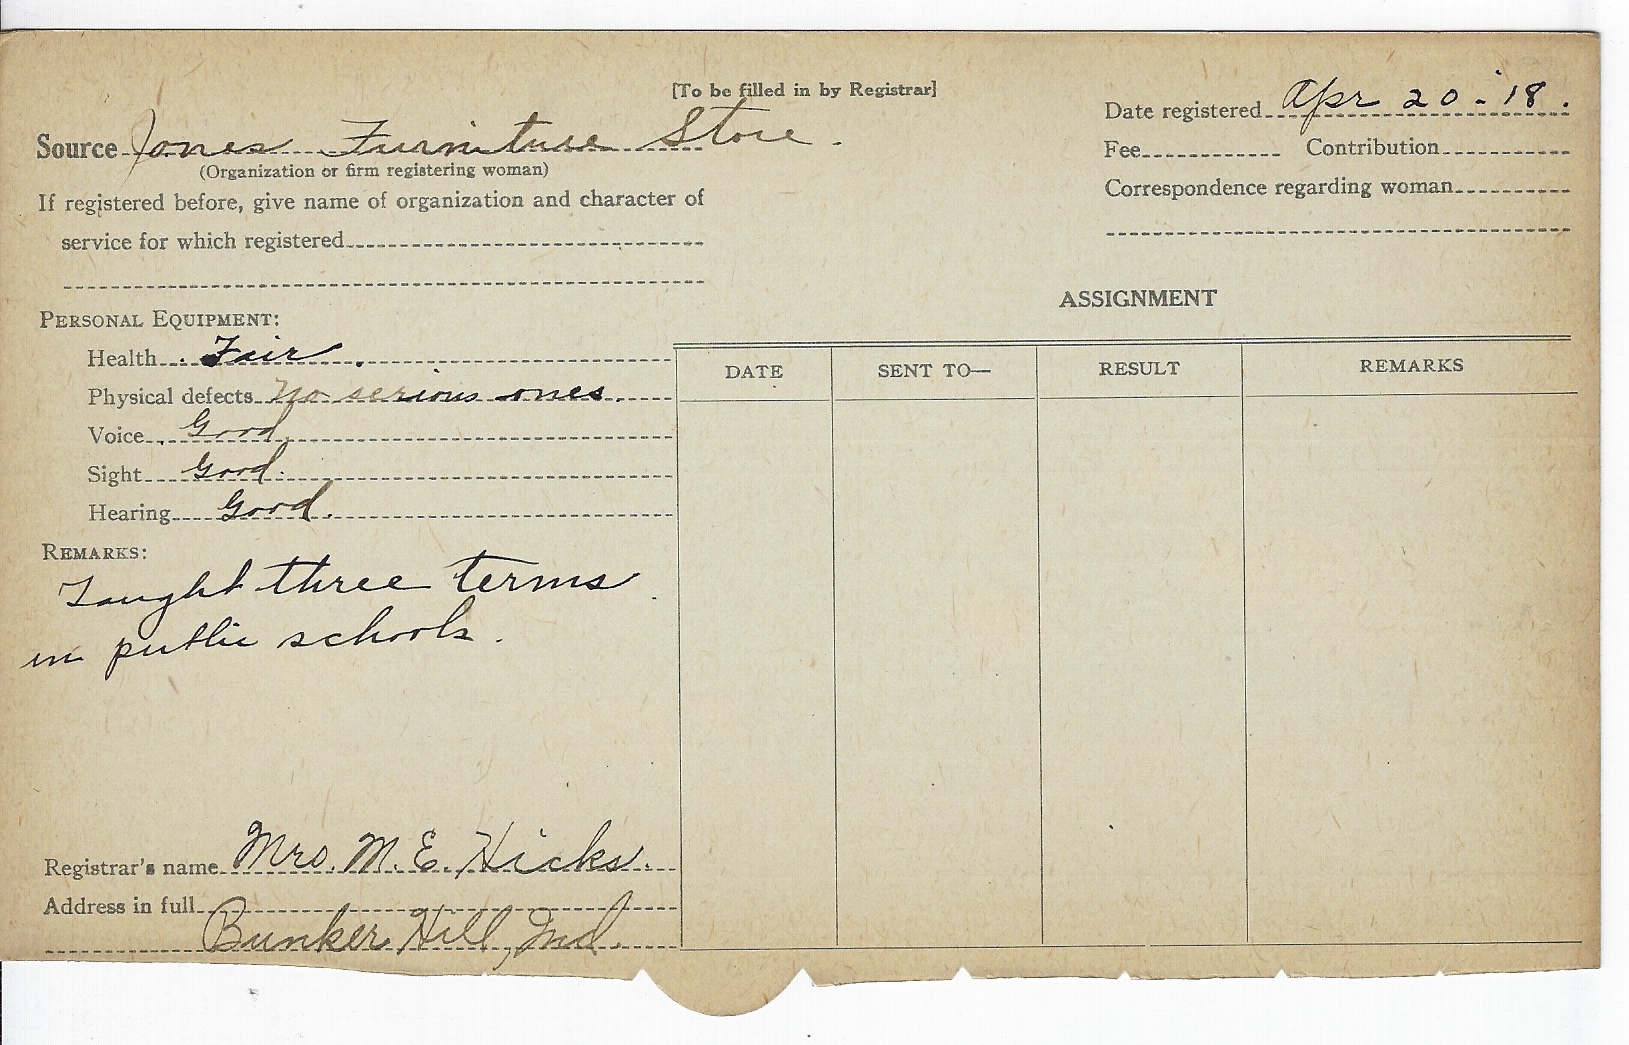 [To be filled in by Registrar]
Date registered Apr 20-'18.
Source Jones Furniture Store.
(Organization or firm registering woman)
Fee Contribution
If registered before, give name of organization and character of
service for which registered
Correspondence regarding woman
PERSONAL EQUIPMENT:
Health Fair.
Physical defects No serious ones.
Voice Good.
Sight Good.
Hearing Good.
REMARKS:
Taught three terms
in public schools.
Registrar's name Mrs. M. E. Hicks.
Address in full
Bunker Hill, Ind.
ASSIGNMENT
DATE SENT TO— RESULT REMARKS